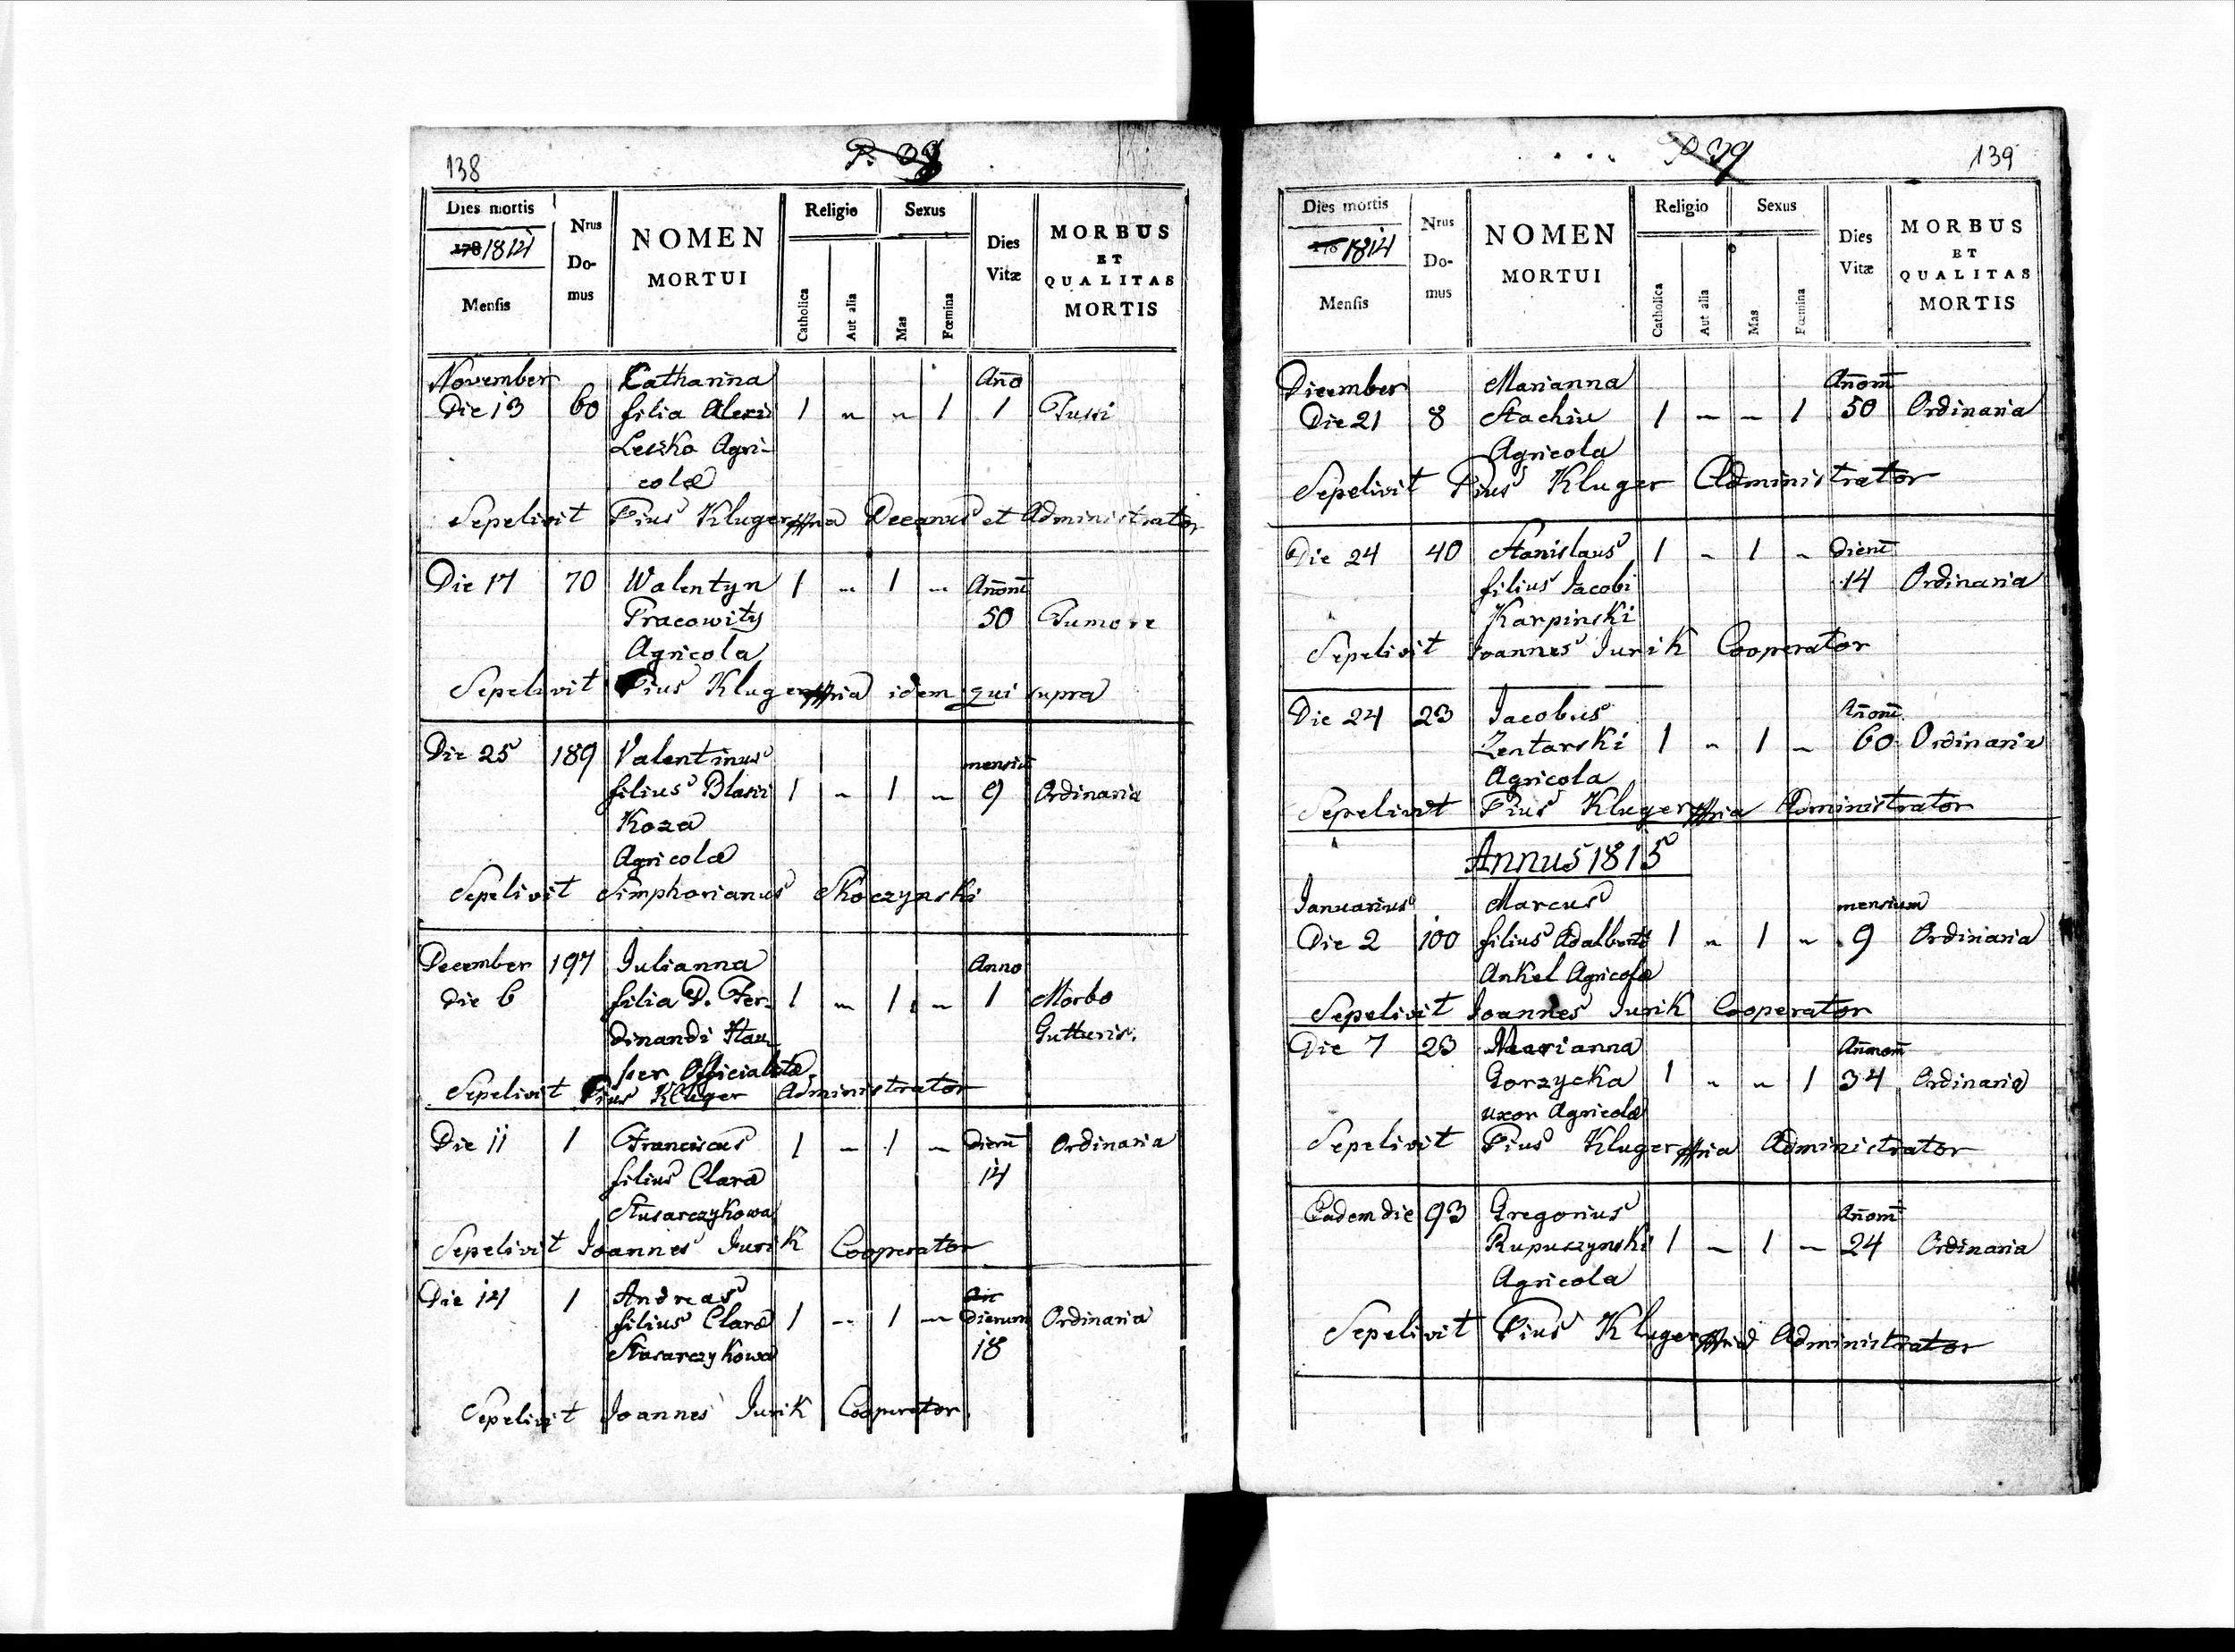 138
P. 38
Dies mortis
178 1814
Mensis
Nrus
Do-
mus
NOMEN
MORTUI
Religio
Catholica
Aut alia
Sexus
Mas
Fœmina
Dies
Vitæ
MORBUS
ET
QUALITAS
MORTIS
November Catharina Ano
Die 13 60 filia Alexii 1 " " 1 1 Tussi
Leszko Agri-
colæ
Sepelivit Pius Kluger mpria Decanus et Administrator
Die 17 70 Walentyn 1 " 1 " Anom
Pracowity 50 Tumore
Agricola
Sepelivit Pius Kluger mpria idem qui supra
Die 25 189 Valentinus mensiu
filius Blasii 1 " 1 " 9 Ordinaria
Koza
Agricolæ
Sepelivit Simphorianus Skoczynski
December 197 Julianna Anno
die 6 filia D. Fer- 1 " 1 " 1 Morbo
dinandi Gutturis.
Sepelivit Pius Kluger Administrator
Die 11 1 Franciscus 1 - 1 - Dieru Ordinaria
filius Claræ 14
Slusarczykowa
Sepelivit Joannes Jurik Cooperator
Die 14 1 Andreas An
filius Claræ 1 - 1 - dierum Ordinaria
Slusarczykowa 18
Sepelivit Joannes Jurik Cooperator
P 39
139
Dies mortis
178 1814
Mensis
Nrus
Do-
mus
NOMEN
MORTUI
Religio
Catholica
Aut alia
Sexus
Mas
Fœmina
Dies
Vitæ
MORBUS
ET
QUALITAS
MORTIS
December Marianna Anom
Die 21 8 Stachiu 1 - - 1 50 Ordinaria
Agricola
Sepelivit Pius Kluger Administrator
Die 24 40 Stanislaus 1 - 1 - Dieru
filius Jacobi 14 Ordinaria
Karpinski
Sepelivit Joannes Jurik Cooperator
Die 24 23 Jacobus Anom
Zentarski 1 " 1 - 60 Ordinaria
Agricola
Sepelivit Pius Kluger mpria Administrator
Annus 1815
Januarius Marcus mensium
Die 2 100 filius Adalberti 1 " 1 " 9 Ordinaria
Ankel Agricolæ
Sepelivit Joannes Jurik Cooperator
Die 7 23 Marianna Annom
Gorzycka 1 " " 1 34 Ordinaria
uxor Agricolæ
Sepelivit Pius Kluger mpria Administrator
Eadem die 93 Gregorius Anom
Rupuszynski 1 - 1 - 24 Ordinaria
Agricola
Sepelivit Pius Kluger mpria Administrator